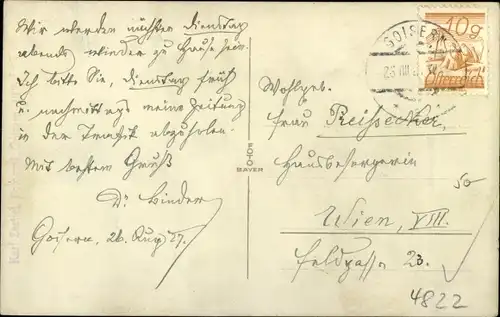 Wir werden nächsten Dienstag
abends wieder zu Hause sein.
Ich bitte Sie, Dienstag früh
u. nachmittags meine Zeitung
in der Trafik abzuholen.
Mit bestem Gruß
Dr. Binder
Goisern, 26. Aug 27.
FOTO
MAYER
GOISERN
10g
Österreich
Wohlgeb.
Frau Preissecker
Hausbesorgerin
Wien, VIII.
Feldgasse 23.
50
4822